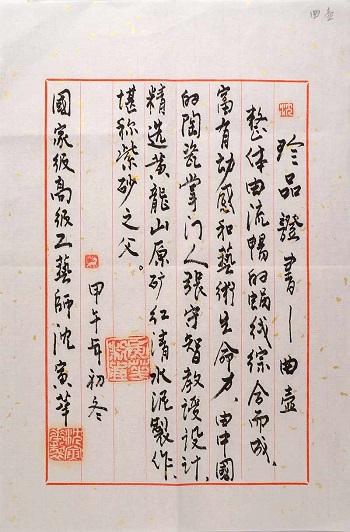 曲壶
珍品證書—曲壺
整体由流暢的蝸线綜合而成、
富有动感和藝術生命力、由中國
的陶瓷掌门人張守智教授设计、
精选黄龍山原矿红清水泥製作、
堪称紫砂之父。
甲午年初冬
國家級高級工藝師沈寅華